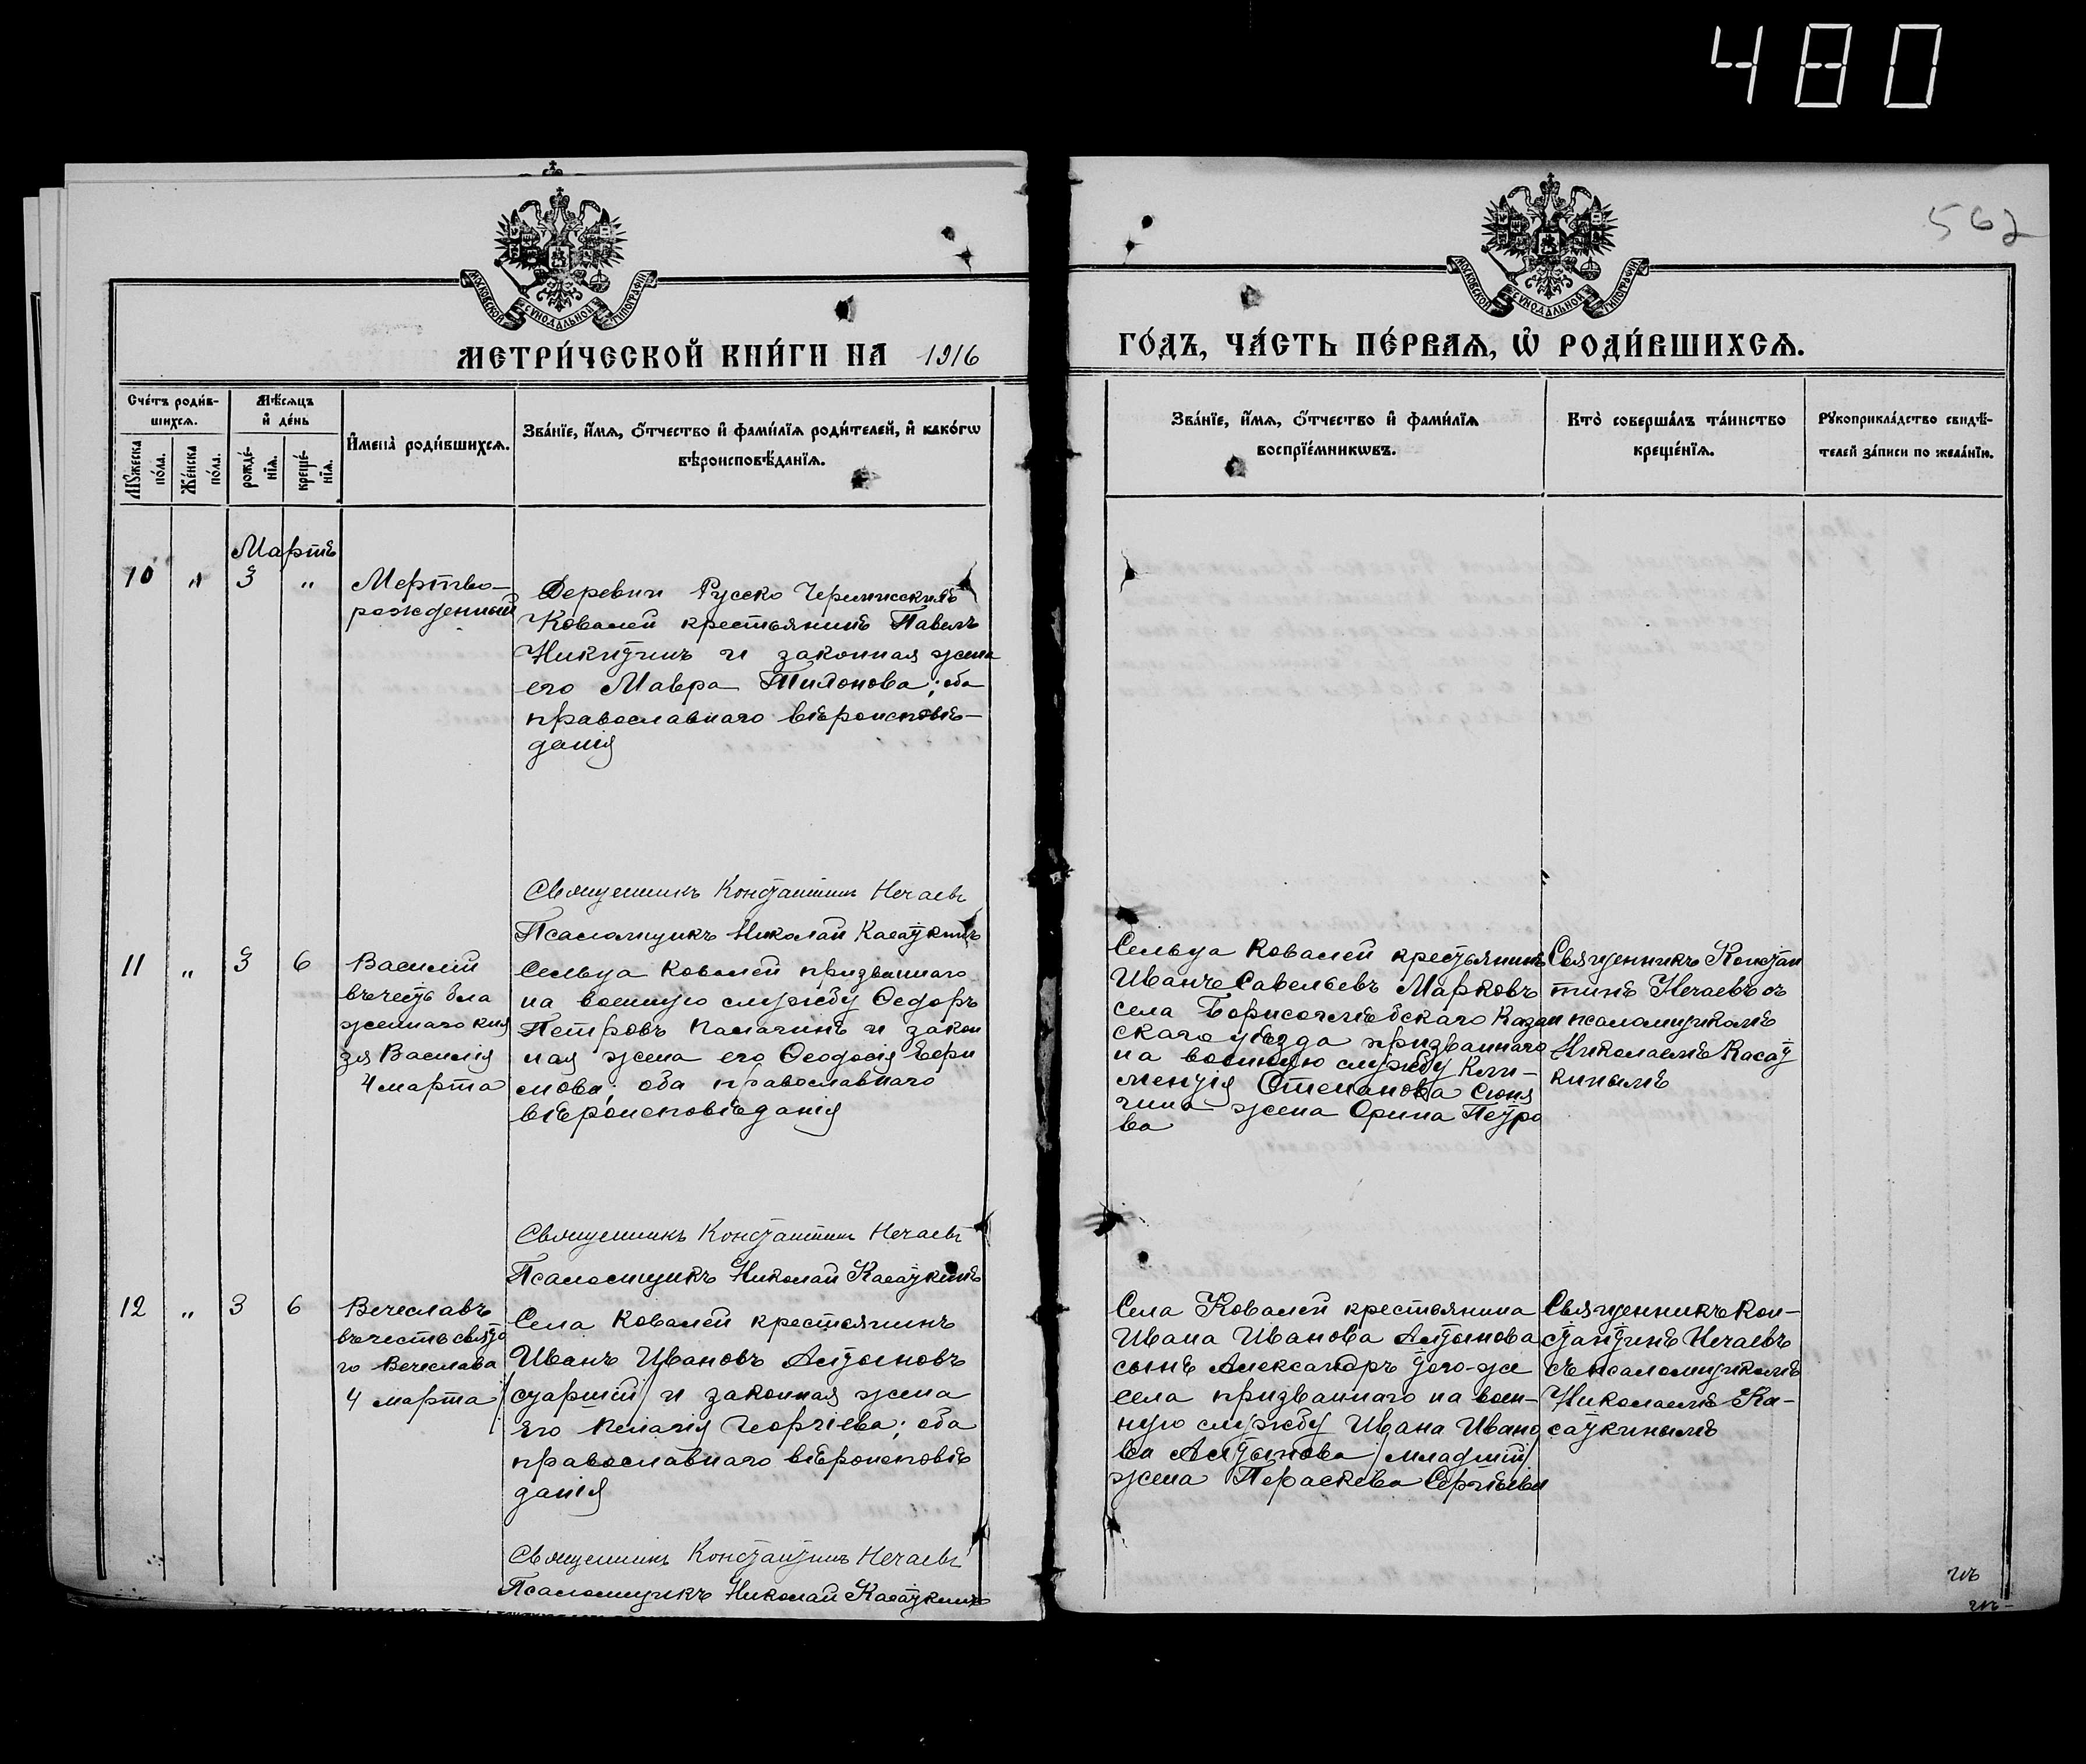 480
562
МОСКОВСКОЙ СѴНОДАЛЬНОЙ ТИПОГРАФІИ
МОСКОВСКОЙ СѴНОДАЛЬНОЙ ТИПОГРАФІИ
МЕТРИ́ЧЕСКОЙ КНИ́ГИ НА 1916
ГО́ДЪ, ЧА́СТЬ ПЕ́РВАѦ, Ѡ҆ РОДИ́ВШИХСѦ.
Сче́тъ роди́в-
шихсѧ.
Мꙋ́жеска
по́ла.
Же́нска
по́ла.
Мѣ́сѧцъ
и҆ де́нь
рожде́-
нїѧ.
креще́-
нїѧ.
И҆мена̀ роди́вшихсѧ.
Зва́нїе, и҆́мѧ, ѻ҆́тчество и҆ фами́лїѧ роди́телей, и҆ како́гѡ
вѣроисповѣ́данїѧ.
Зва́нїе, и҆́мѧ, ѻ҆́тчество и҆ фами́лїѧ
воспрїе́мникѡвъ.
Кто̀ соверша́лъ та́инство
креще́нїѧ.
Рꙋкоприкла́дство свидѣ́-
телей за́писи по жела́нїю.
Мартъ
10 „ 3 „
Мертво-
рожденный
Деревни Русско Черемисскихъ
Ковалей крестьянинъ Павелъ
Никитинъ и законная жена
его Мавра Тихонова; оба
православнаго вѣроисповѣ-
данія
Священникъ Константинъ Нечаевъ
Псаломщикъ Николай Касаткинъ
11 „ 3 6
Василій
въ честь бла
женнаго кня
зя Василія
4 марта
Сельца Ковалей призваннаго
на военную службу Ѳедоръ
Петровъ Палачинъ и закон
ная жена его Ѳеодосія Ефи
мова; оба православнаго
вѣроисповѣданія
Сельца Ковалей крестьянинъ
Иванъ Савельевъ Марковъ
села Борисоглѣбскаго Казан
скаго уѣзда призваннаго
на военную службу Кли-
ментія Степанова Сюня
гина жена Орина Петро
ва
Священникъ Констан
тинъ Нечаевъ съ
псаломщикомъ
Николаемъ Касат
кинымъ
Священникъ Константинъ Нечаевъ
Псаломщикъ Николай Касаткинъ
12 „ 3 6
Вечеславъ
въ честь свято
го Вечеслава
4 марта
Села Ковалей крестьянинъ
Иванъ Ивановъ Алтыновъ
/старшій/ и законная жена
его Пелагія Георгіева; оба
православнаго вѣроисповѣ
данія
Села Ковалей крестьянина
Ивана Иванова Алтынова
сынъ Александръ того-же
села призваннаго на воен-
ную службу Ивана Ивано
ва Алтынова /младшій/
жена Параскева Сергѣева
Священникъ Кон-
стантинъ Нечаевъ
съ псаломщикомъ
Николаемъ Ка-
саткинымъ
Священникъ Константинъ Нечаевъ
Псаломщикъ Николай Касаткинъ